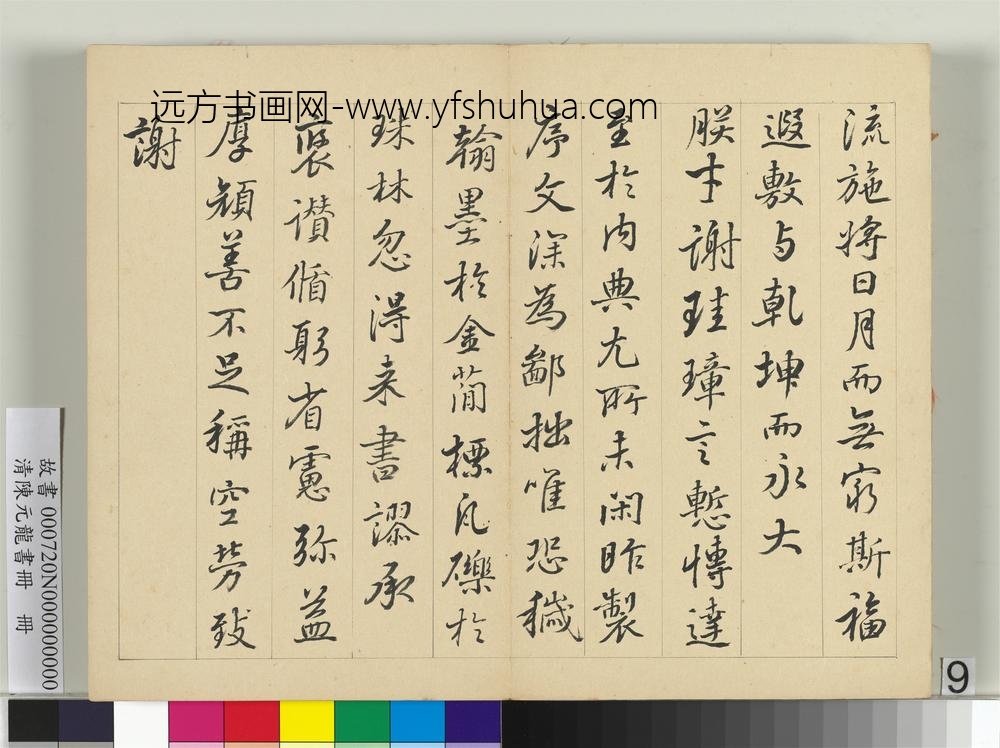 远方书画网-www.yfshuhua.com
流施将日月而無窮斯福
遐敷与乾坤而永大
朕才謝珪璋言慙博達
至於内典尤所未閑昨製
序文深為鄙拙唯恐穢
翰墨於金簡標瓦礫於
珠林忽得来書謬承
襃讃循躬省慮弥益
厚顔善不足稱空勞致
謝
故書 000720N000000000
清陳元龍書冊 冊
9